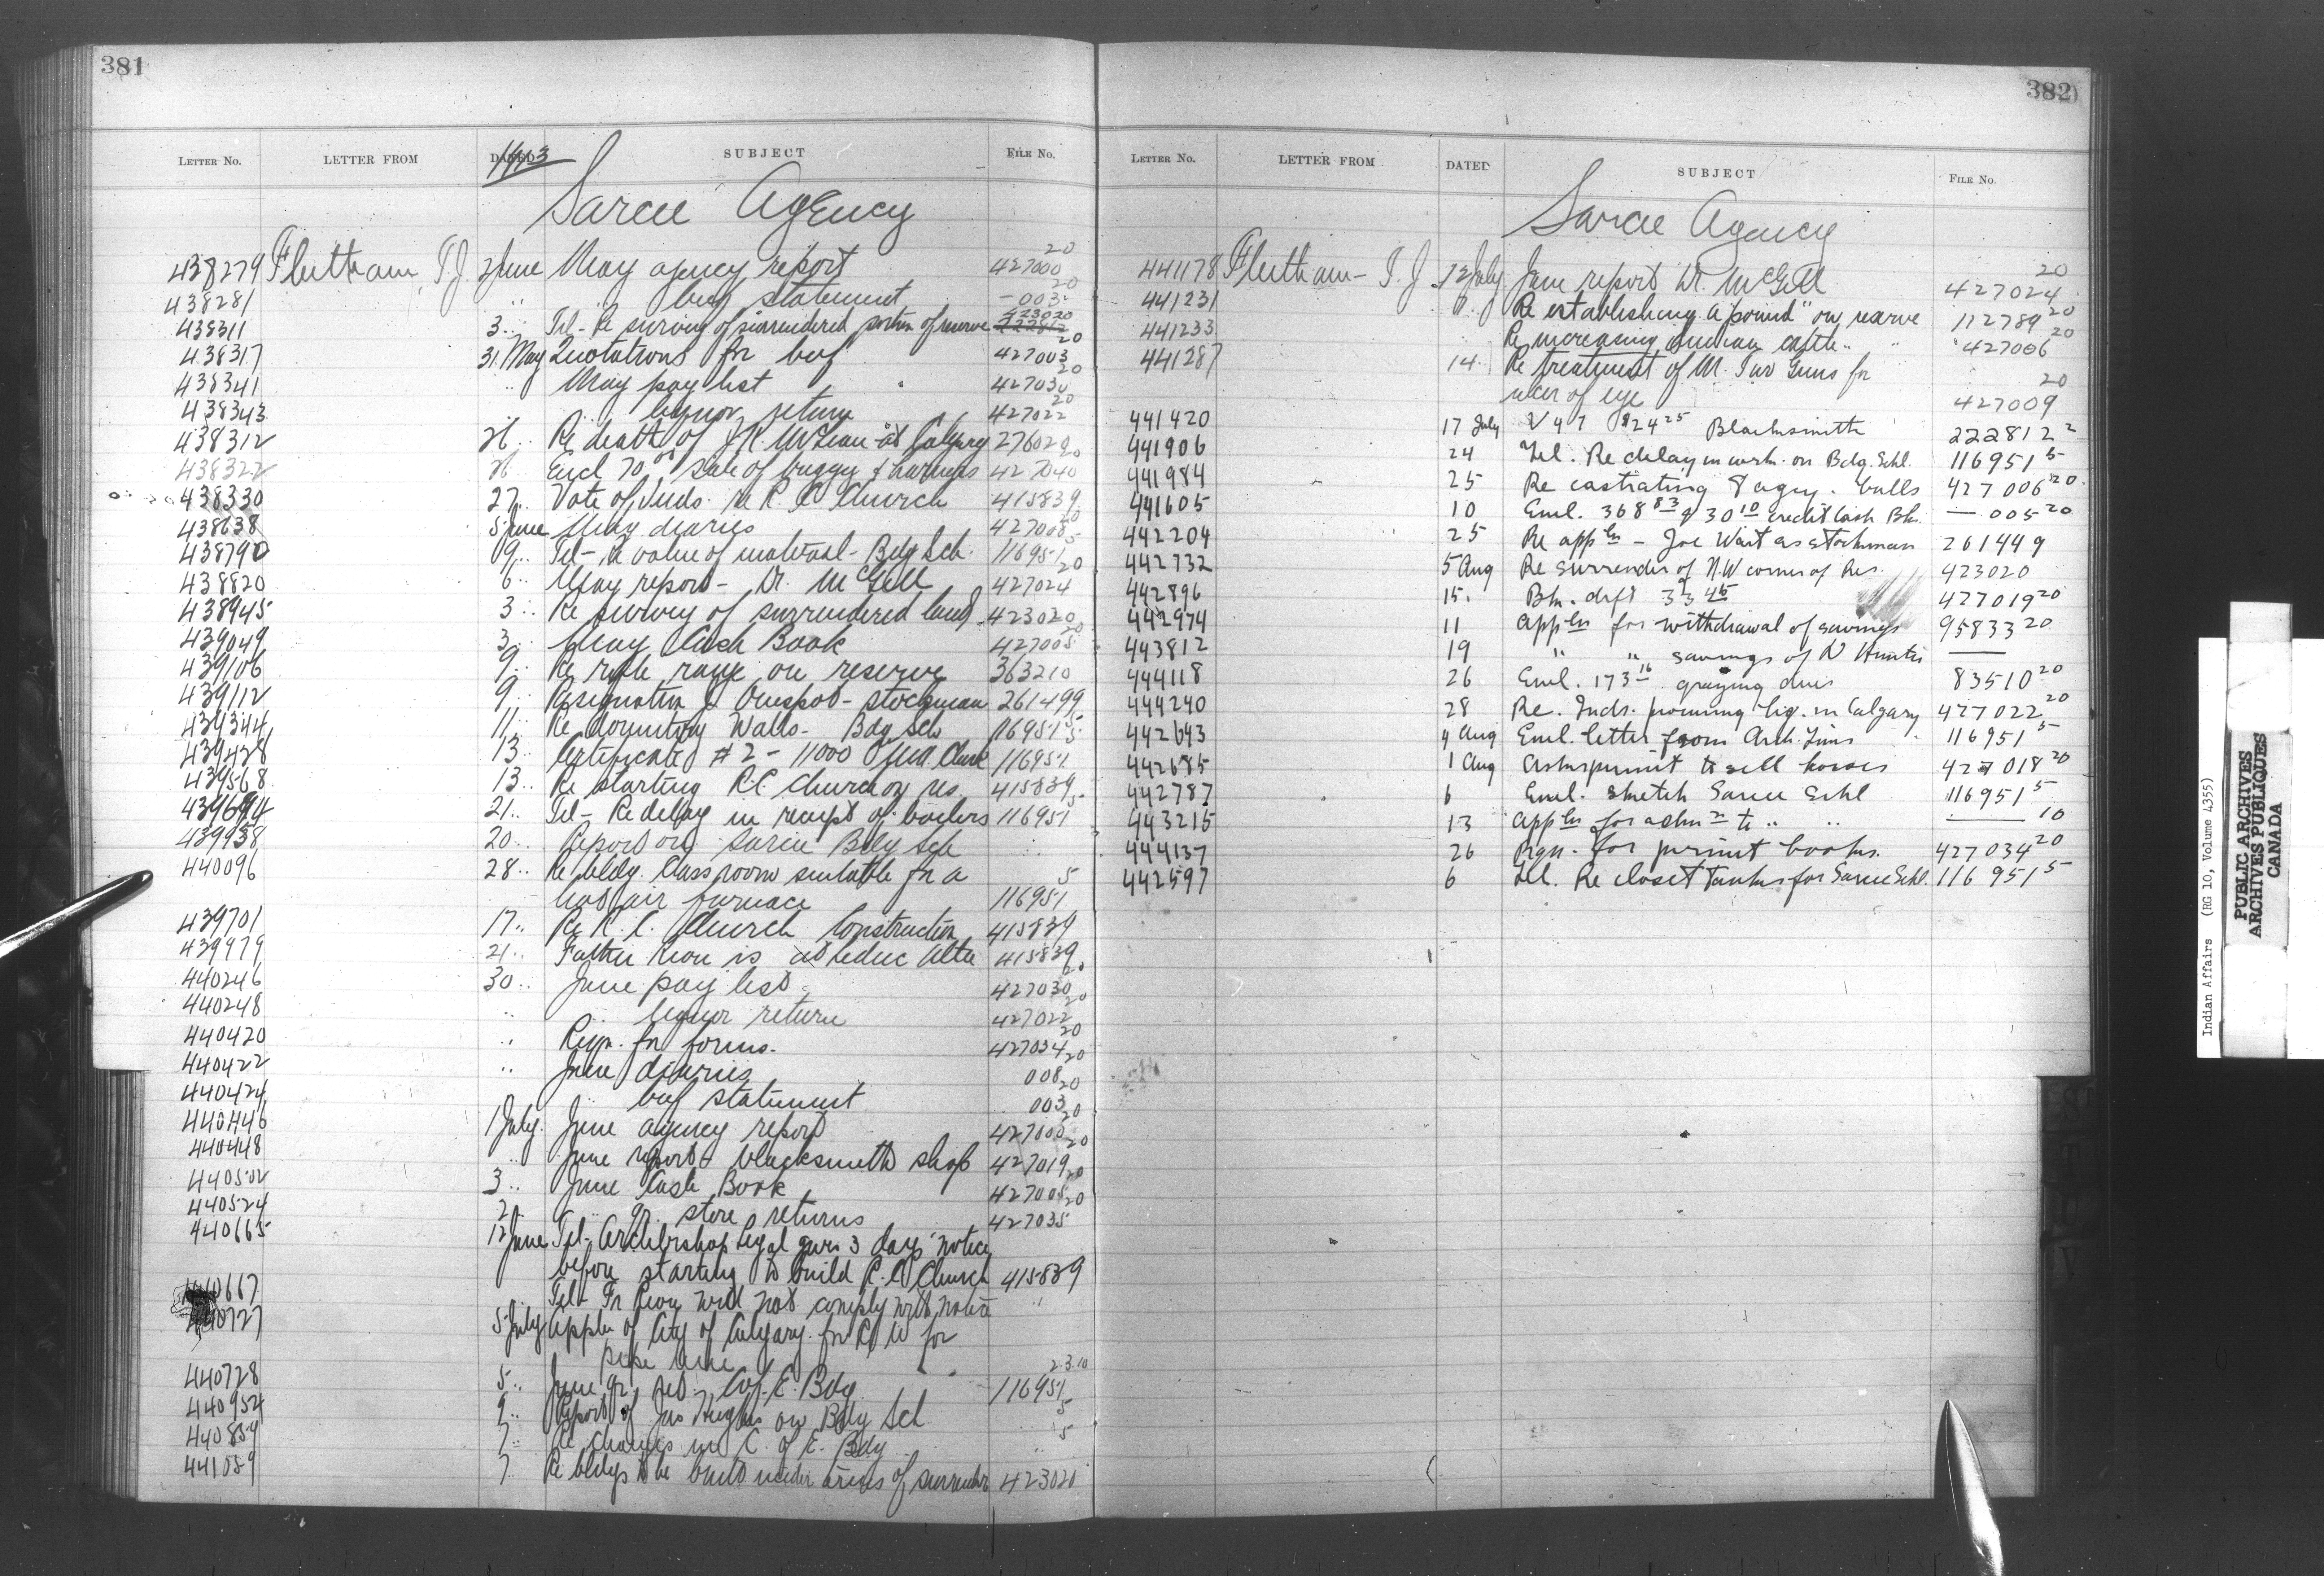 381
LETTER No. LETTER FROM DATED 1913 SUBJECT FILE No.
Sarcee Agency
438279 Fleetham, T.J. 2 June May agency report 427000 20
438281 " " beef statement - 003 20
438311 3 " Tel - Re survey of surrendered portion of reserve 423020
438317 31 May Quotations for beef 427003 20
438341 " May pay list 427030 20
438343 " liquor return 427022 20
438312 26 " Re death of J.K. McLean at Calgary 276020
438322 Encl 70 sale of buggy & harness 427040 20
438330 27 " Vote of Inds. re R.C. Church 415839
438638 5 June May diaries 427008 20
438790 9 " Tel - Re value of material - Bdg Sch. 116951 5
438820 6 " May report - Dr. McGill 427024 20
438945 3 " Re survey of surrendered land 423020
439049 3 " May Cash Book 427005 20
439106 9 " Re rifle range on reserve 363210
439112 9 " Resignation - stockman 261499
439344 11 " Re dormitory Walls - Bdg Sch 116951 5
439428 13 " Certificate # 2 - 11000 116951 5
439568 13 " Re starting R.C. Church on res. 415839
439694 21 " Tel - Re delay in receipt of boilers 116951 5
439938 20 " Report on Sarcee Bdg Sch " "
440096 28 " Re bldg. Class room suitable for a
hot air furnace 116951 5
439701 17 " Re R.C. Church Construction 415839
439979 21 " Father is at Leduc Alta 415839
440246 30 " June pay list 427030 20
440248 " " liquor return 427022 20
440420 " Reqn. for forms. 427034 20
440422 " June diaries 008 20
440424 " beef statement 003 20
440446 1 July June agency report 427000 20
440448 " June report - blacksmith shop 427019 20
440502 3 " June Cash Book 427005 20
440524 2 " " qr. store returns 427035 20
440665 12 June Tel - Archbishop Legal gives 3 days notice
before starting to build R.C. Church 415839
440667 " Tel - Fr will not comply with notice "
440727 5 July Appln of City of Calgary for R of W for
pipe line
440728 5 " June qr. ret. C of E. Bdg. 116951
440954 9 " Report of Jas Hughes on Bdg Sch. " 5
440859 7 " Re changes in C. of E. Bdg " 5
441059 7 " Re bldgs to be built under areas of surrender 423020
382
LETTER No. LETTER FROM DATED SUBJECT FILE No.
Sarcee Agency
441178 Fleetham - T.J. 12 July June report Dr. McGill 427024 20
441231 " " Re establishing a "pound" on reserve 112789 20
441233 Re increasing Indian cattle " " 427006 20
441287 14 " Re treatment of M. Two Guns for
ulcer of eye 427009 20
441420 17 July V 47 $24 25 Blacksmith 222812 2
441906 24 Tel. Re delay in work on Bdg. Schl. 116951 5
441984 25 Re castrating 8 agcy. bulls 427006 20
441605 10 Encl. 368 83 & 30 10 credit Cash Bk. — 005 20
442204 25 Re appln - Joe Wait as stockman 261449
442732 5 Aug Re surrender of N.W corner of Res. 423020
442896 15 " Bk. dft 33 45 427019 20
442974 11 appln for withdrawal of savings 95833 20
443812 19 " " savings of D Hunter —
444118 26 Encl. 173 16 grazing dues 83510 20
444240 28 Re. Inds. procuring liq. in Calgary 427022 20
442643 4 Aug Encl. letter from Arch. Tims 116951 5
442685 1 Aug Asks permit to sell horses 427018 20
442787 6 Encl. sketch Sarcee Schl 116951 5
443215 13 appln for admn to " " — 10
444137 26 Rqn. for permit books. 427034 20
442597 6 Tel. Re closet tanks for Sarcee Schl. 116951 5
Indian Affairs (RG 10, Volume 4355)
PUBLIC ARCHIVES
ARCHIVES PUBLIQUES
CANADA